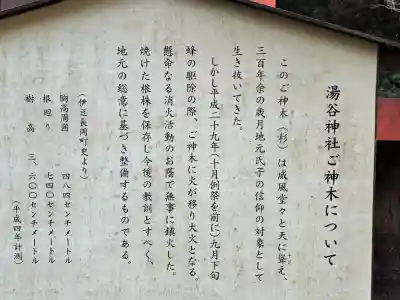 湯谷神社ご神木について
このご神木（杉）は威風堂々と天に聳え、
三百年余の歳月地元氏子の信仰の対象として
生き抜いてきた。
しかし平成二十九年（十月例祭を前に）九月下旬
蜂の駆除の際、ご神木に火が移り大火となる。
懸命なる消火活動のお蔭で無事に鎮火した。
焼けた根株を保存し今後の教訓とすべく、
地元の総意に基づき整備するものである。
（伊豆長岡町史より）
胸高周囲 四八四センチメートル
根廻り 七四〇センチメートル
樹高 三、六〇〇センチメートル
（平成四年計測）